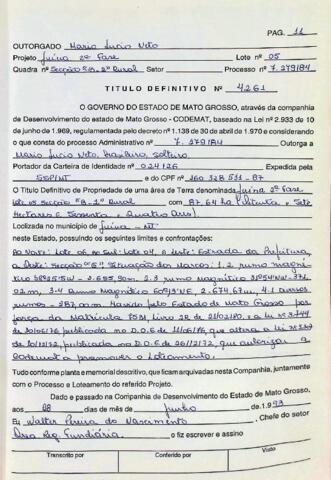 PAG. 11
OUTORGADO Mario Lucio Neto
Projeto Juina 2ª Fase Lote nº 05
Quadra nº Secção "SB-2" Rural Setor Processo nº 7.279/84
TITULO DEFINITIVO Nº 4261
O GOVERNO DO ESTADO DE MATO GROSSO, através da companhia
de Desenvolvimento do estado de Mato Grosso - CODEMAT, baseado na Lei Nº 2.933 de
10 de junho de 1.969, regulamentado pelo decreto nº 1.138 de 30 de abril de 1.970 e considerando
o que consta do processo Administrativo nº 7.279/84 Outorga a
Mario Lucio Neto, brasileiro, solteiro
Portador da Carteira de Identidade nº 024126 Expedida pela
e do CPF nº 160 328 531-87
O Título Definitivo de Propriedade de uma área de Terra denominada Juina 2ª Fase
Lote 05 Secção Rural com 87.64 ha (oitenta e sete
Hectares e Sessenta e Quatro Ares)
Loclizada no município de Juina - MT
neste Estado, possuindo os seguintes limites e confrontações:
Ao Norte: Lote 06, ao Sul: Lote 04, a Leste: Estrada da Prefeitura,
a Oeste: Secção Situação dos Marcos: 1.2 rumo magné
2.3 rumo magnético
m, 3.4 rumo magnético 2.674,67m, 4.1 diversos
rumos - 287,00m. Havido pelo Estado de Mato Grosso por
força da Matrícula Livro 2R de e a Lei Nº 3.744
publicada no D.O.E de que altera a Lei Nº
10/12/72, publicada no D.O.E de 20/12/72, que autorizou a
Codemat a promover o Loteamento.
Tudo conforme planta e memorial descritivo, que ficam arquivadas nesta Companhia, juntamente
com o Processo e Loteamento do referido Projeto.
Dado e passado na Companhia de Desenvolvimento do Estado de Mato Grosso,
aos 08 dias do mês de Junho de 1.993
Eu Walter Pereira do Nascimento, Chefe do setor
Reg. Fundiária o fiz escrever e assino
Transcrito por Conferido por Visto